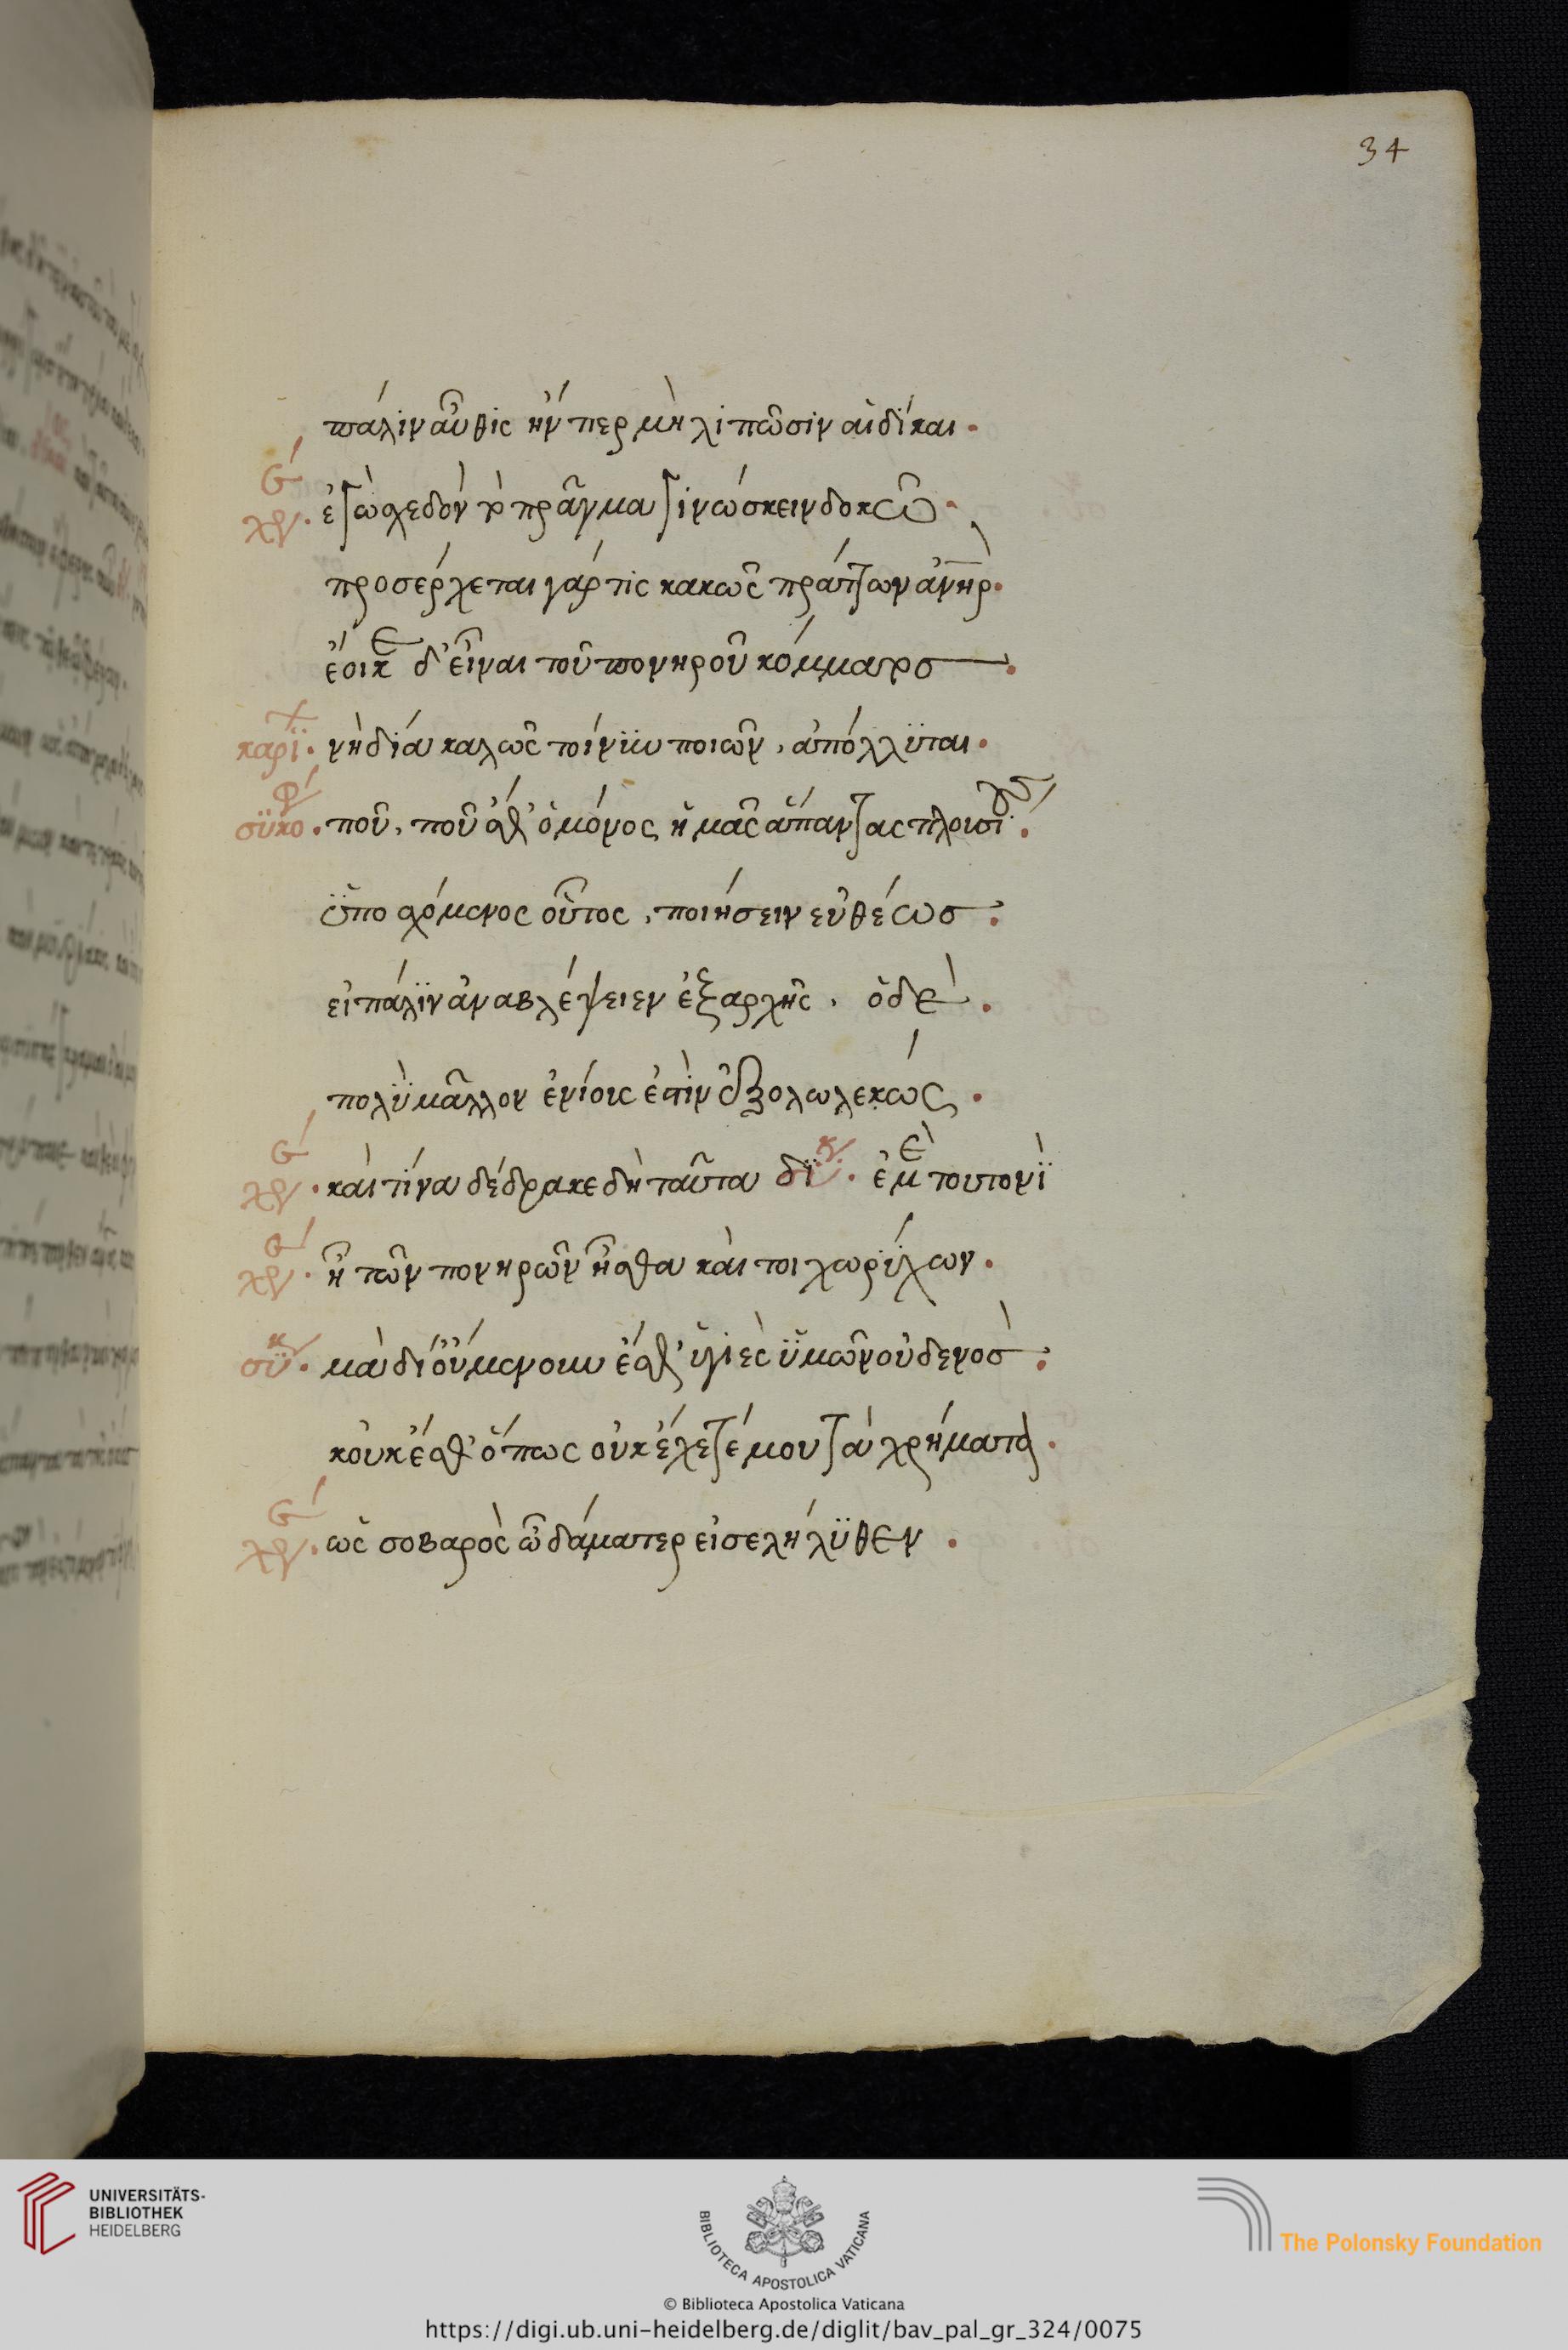 34
πάλιν αὖθις ἤνπερ μὴ λίπωσιν αἱ δίκαι.
χρε. ἐγὼ σχεδὸν τὸ πρᾶγμα γινώσκειν δοκῶ.
προσέρχεται γάρ τις κακῶς πράττων ἀνήρ.
ἔοικε δ' εἶναι τοῦ πονηροῦ κόμματος.
καρϊ. νὴ δία καλῶς τοίνυν ποιῶν, ἀπόλλϋται.
σϋκο. ποῦ, ποῦ ἐσθ' ὁ μόνος ἡμᾶς ἅπαντας πλουσίους.
ὑποσχόμενος οὗτος, ποιήσειν εὐθέως.
εἰ πάλϊν ἀναβλέψειεν ἐξαρχῆς, ὁ δὲ.
πολῢ μᾶλλον ἐνίους ἐστὶν ἐξολωλεκώς.
χρε. καὶ τίνα δέδρακε δὴ ταῦτα συκ. ἐμὲ τουτονί
χρε. ἦ τῶν πονηρῶν ἦσθα καὶ τοιχωρύχων.
σϋκ. μὰ δί οὐ μενουν ἔσθ' ὑγιὲς ὑμῶν οὐδενὸς.
κοὐκ ἔσθ' ὅπως οὐκ ἔχετέ μου τὰ χρήματα.
χρε. ὡς σοβαρὸς ὦ δάματερ εἰσελήλϋθεν.
UNIVERSITÄTS-
BIBLIOTHEK
HEIDELBERG
BIBLIOTECA APOSTOLICA VATICANA
The Polonsky Foundation
© Biblioteca Apostolica Vaticana
https://digi.ub.uni-heidelberg.de/diglit/bav_pal_gr_324/0075